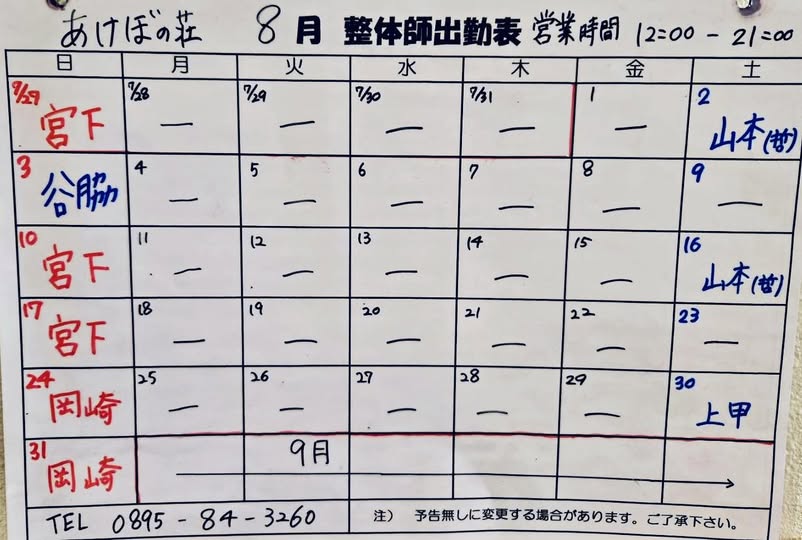 あけぼの荘 8月 整体師出勤表 営業時間 12:00 - 21:00
日 月 火 水 木 金 土
7/29 7/28 7/29 7/30 7/31 1 2
宮下 — — — — — 山本(哲)
3 4 5 6 7 8 9
谷脇 — — — — — —
10 11 12 13 14 15 16
宮下 — — — — — 山本(哲)
17 18 19 20 21 22 23
宮下 — — — — — —
24 25 26 27 28 29 30
岡崎 — — — — — 上甲
31 9月
岡崎
TEL 0895-84-3260 注) 予告無しに変更する場合があります。ご了承下さい。